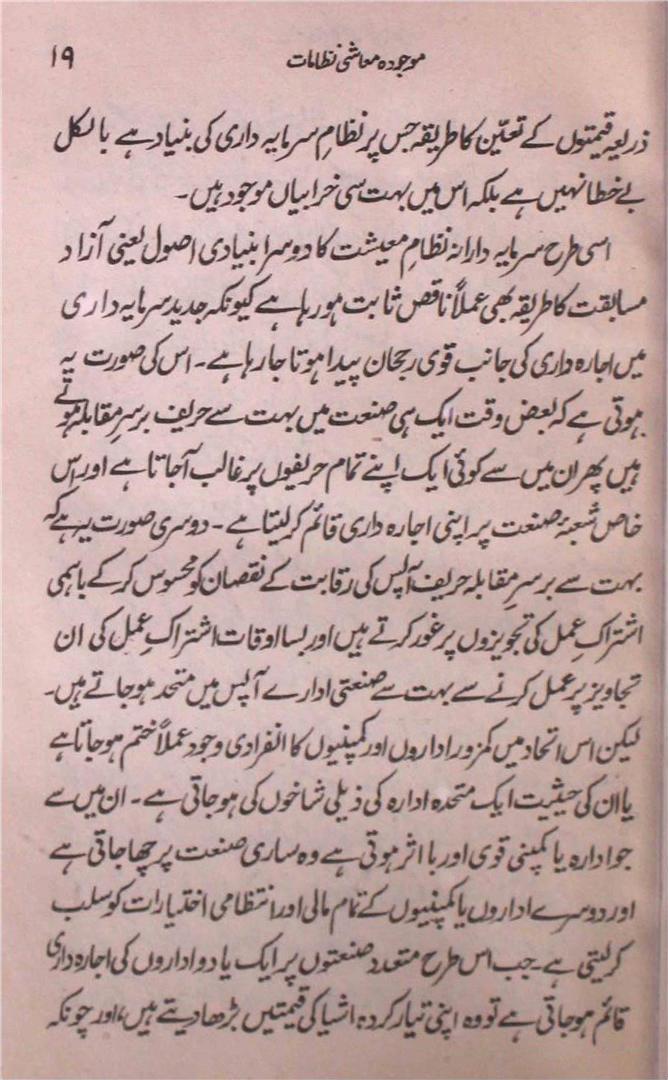 موجودہ معاشی نظامات
۱۹
ذریعہ قیمتوں کے تعیّن کا طریقہ جس پر نظامِ سرمایہ داری کی بنیاد ہے بالکل
بے خطا نہیں ہے بلکہ اس میں بہت سی خرابیاں موجود ہیں۔
اسی طرح سرمایہ دارانہ نظامِ معیشت کا دوسرا بنیادی اصول یعنی آزاد
مسابقت کا طریقہ بھی عملاً ناقص ثابت ہو رہا ہے کیونکہ جدید سرمایہ داری
میں اجارہ داری کی جانب قوی رجحان پیدا ہوتا جارہا ہے۔ اس کی صورت یہ
ہوتی ہے کہ بعض وقت ایک ہی صنعت میں بہت سے حریف برسرِ مقابلہ ہوتے
ہیں پھر ان میں سے کوئی ایک اپنے تمام حریفوں پر غالب آجاتا ہے اور اس
خاص شعبۂ صنعت پر اپنی اجارہ داری قائم کر لیتا ہے۔ دوسری صورت یہ ہے کہ
بہت سے برسرِ مقابلہ حریف آپس کی رقابت کے نقصان کو محسوس کر کے باہمی
اشتراکِ عمل کی تجویزوں پر غور کرتے ہیں اور بسا اوقات اشتراکِ عمل کی ان
تجاویز پر عمل کرنے سے بہت سے صنعتی ادارے آپس میں متحد ہو جاتے ہیں۔
لیکن اس اتحاد میں کمزور اداروں اور کمپنیوں کا انفرادی وجود عملاً ختم ہو جاتا ہے
یا ان کی حیثیت ایک متحدہ ادارہ کی ذیلی شاخوں کی ہو جاتی ہے۔ ان میں سے
جو ادارہ یا کمپنی قوی اور با اثر ہوتی ہے وہ ساری صنعت پر چھا جاتی ہے
اور دوسرے اداروں یا کمپنیوں کے تمام مالی اور انتظامی اختیارات کو سلب
کر لیتی ہے۔ جب اس طرح متعدد صنعتوں پر ایک یا دو اداروں کی اجارہ داری
قائم ہو جاتی ہے تو وہ اپنی تیار کردہ اشیا کی قیمتیں بڑھا دیتے ہیں، اور چونکہ